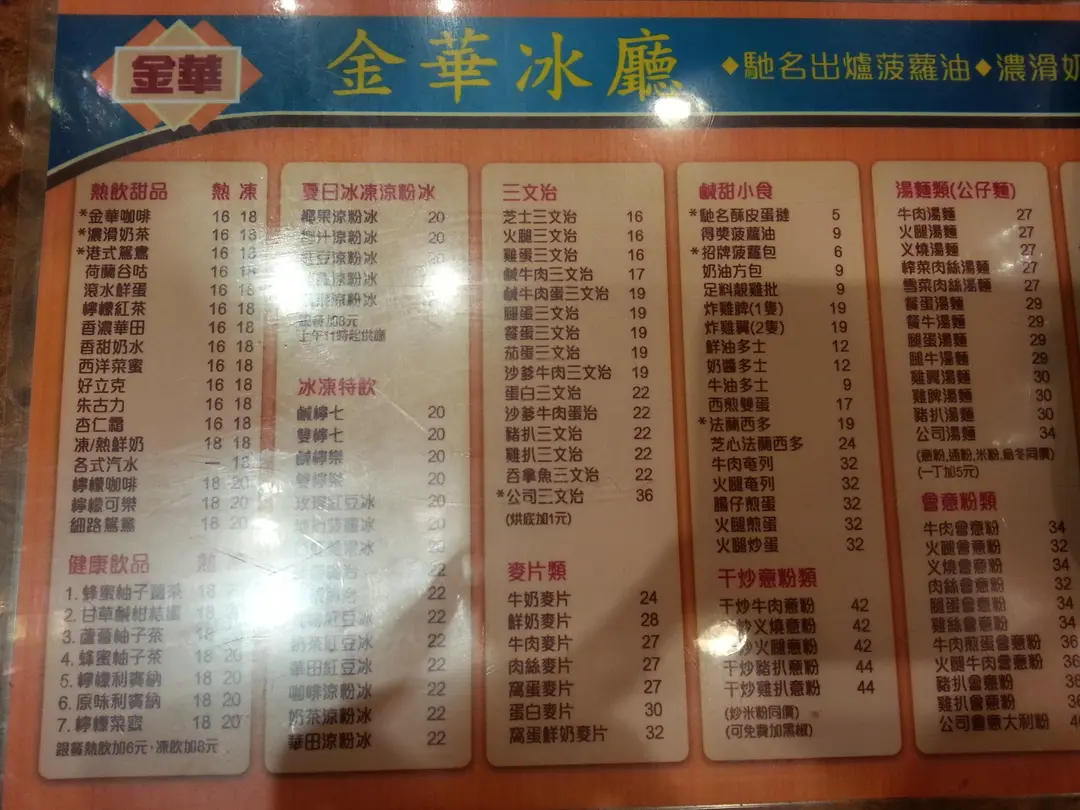 金華
金華冰廳
◆馳名出爐菠蘿油◆濃滑奶
熱飲甜品 熱 凍
*金華咖啡 16 18
*濃滑奶茶 16 18
*港式鴛鴦 16 18
荷蘭谷咕 16 18
滾水鮮蛋 16 18
檸檬紅茶 16 18
香濃華田 16 18
香甜奶水 16 18
西洋菜蜜 16 18
好立克 16 18
朱古力 16 18
杏仁霜 16 18
凍/熱鮮奶 18 18
各式汽水 — 18
檸檬咖啡 18 20
檸檬可樂 18 20
細路鴛鴦 18 20
健康飲品 熱
1. 蜂蜜柚子薑茶 18
2. 甘草鹹柑桔蜜 18
3. 蘆薈柚子茶 18
4. 蜂蜜柚子茶 18 20
5. 檸檬利賓納 18 20
6. 原味利賓納 18 20
7. 檸檬菜蜜 18 20
跟餐熱飲加6元，凍飲加8元
夏日冰凍涼粉冰
椰果涼粉冰 20
椰汁涼粉冰 20
紅豆涼粉冰
涼粉冰
涼粉冰
跟餐加8元
上午11時起供應
冰凍特飲
鹹檸七 20
雙檸七 20
鹹檸樂 20
雙檸樂 20
玫瑰紅豆冰 20
菠蘿冰 20
冰 20
22
22
紅豆冰 22
奶茶紅豆冰 22
華田紅豆冰 22
咖啡涼粉冰 22
奶茶涼粉冰 22
華田涼粉冰 22
三文治
芝士三文治 16
火腿三文治 16
雞蛋三文治 16
鹹牛肉三文治 17
鹹牛肉蛋三文治 19
腿蛋三文治 19
餐蛋三文治 19
茄蛋三文治 19
沙爹牛肉三文治 19
蛋白三文治 22
沙爹牛肉蛋治 22
豬扒三文治 22
雞扒三文治 22
吞拿魚三文治 22
*公司三文治 36
(烘底加1元)
麥片類
牛奶麥片 24
鮮奶麥片 28
牛肉麥片 27
肉絲麥片 27
窩蛋麥片 27
蛋白麥片 30
窩蛋鮮奶麥片 32
鹹甜小食
*馳名酥皮蛋撻 5
得獎菠蘿油 9
*招牌菠蘿包 6
奶油方包 9
足料靚雞批 9
炸雞髀(1隻) 19
炸雞翼(2隻) 19
鮮油多士 12
奶醬多士 12
牛油多士 9
西煎雙蛋 17
*法蘭西多 19
芝心法蘭西多 24
牛肉奄列 32
火腿奄列 32
腸仔煎蛋 32
火腿煎蛋 32
火腿炒蛋 32
干炒意粉類
干炒牛肉意粉 42
炒叉燒意粉 42
炒火腿意粉 42
干炒豬扒意粉 44
干炒雞扒意粉 44
(炒米粉同價)
(可免費加黑椒)
湯麵類(公仔麵)
牛肉湯麵 27
火腿湯麵 27
叉燒湯麵 27
榨菜肉絲湯麵 27
雪菜肉絲湯麵 27
餐蛋湯麵 29
餐牛湯麵 29
腿蛋湯麵 29
腿牛湯麵 29
雞翼湯麵 30
雞髀湯麵 30
豬扒湯麵 30
公司湯麵 34
(意粉,通粉,米粉,烏冬同價)
(一丁加5元)
會意粉類
牛肉會意粉 34
火腿會意粉 32
叉燒會意粉 34
肉絲會意粉 32
腿蛋會意粉 34
雞絲會意粉 34
牛肉煎蛋會意粉 36
火腿牛肉會意粉 36
豬扒會意粉 36
雞扒會意粉 36
公司會意大利粉